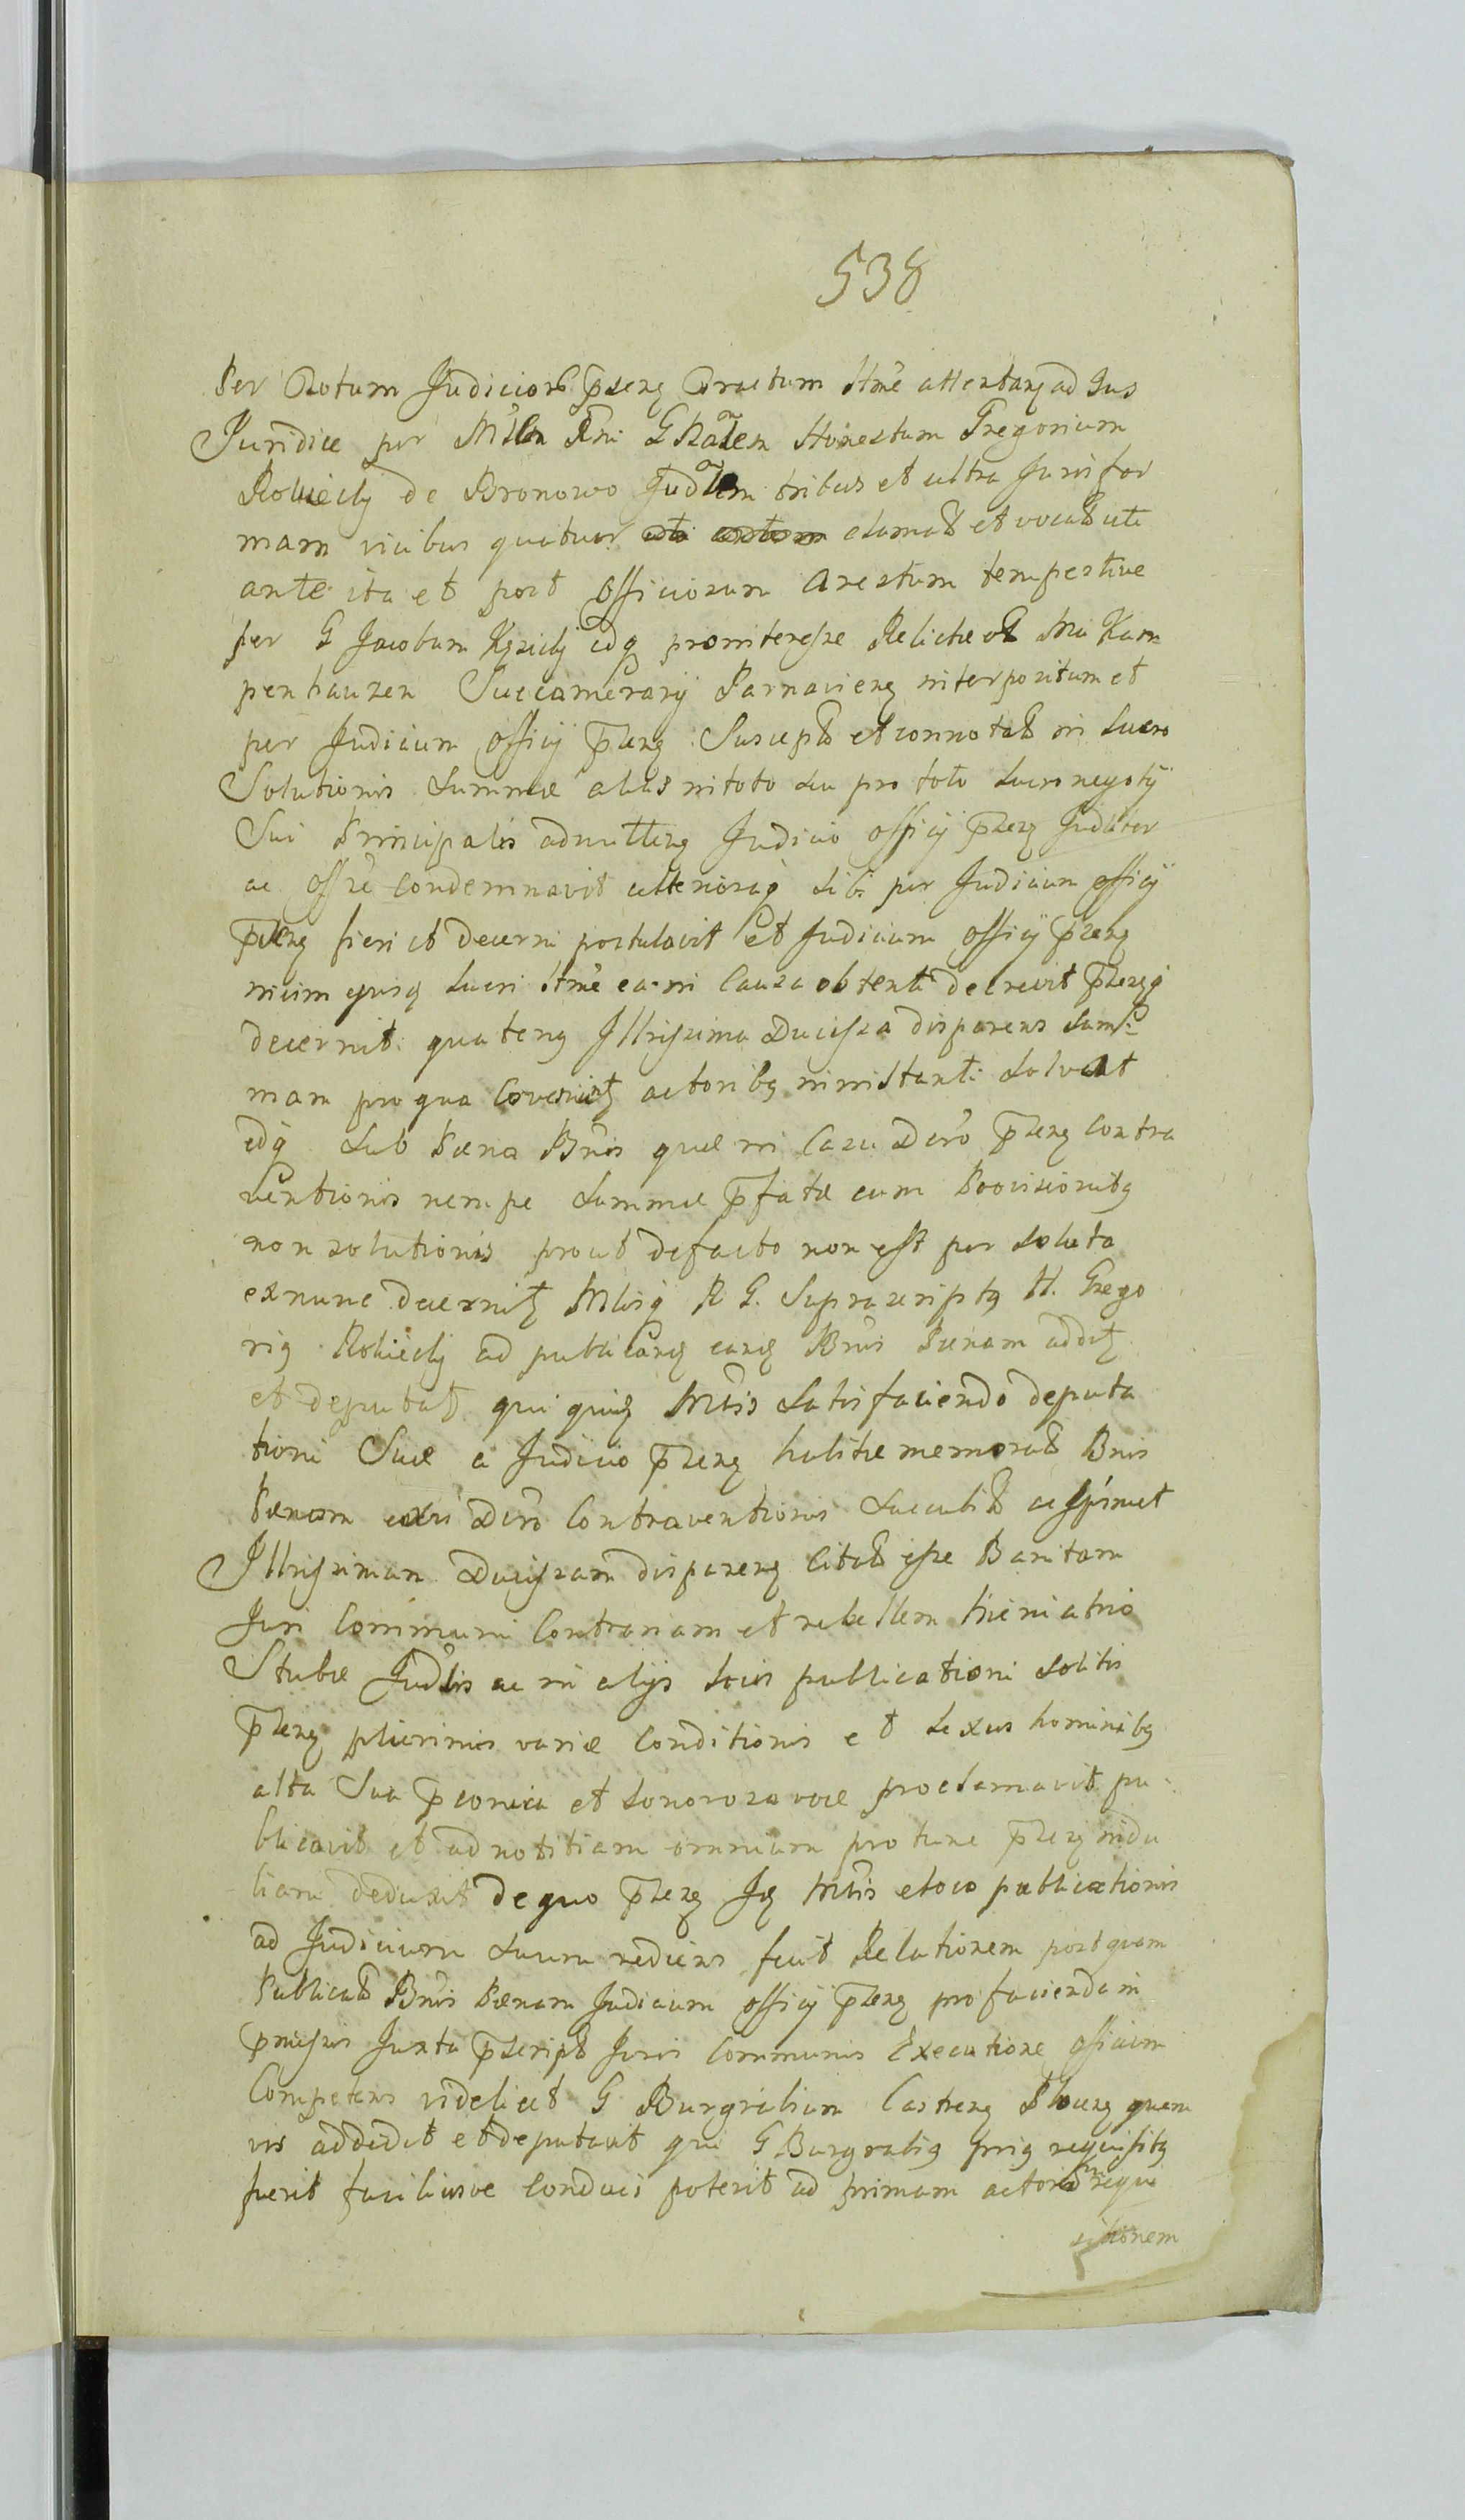 538
Per totum Judicior͂ p͞ns tractum Ilm̃e attentanq́ ad Jus
Juridice per Mĩlem R̃ni G Nãlem Honestum Gregorium
Rokicly de Bronowo Jud̃lem tribus et ultra Juris for
mam vicibus quatuor clamat et vocat uti
ante ita et post Officiosum Arestum tempestive
per G Jacobum idq pro interesse Relictæ Mci Kam
penhauzen Succamerarij Parnaviens interpositum et
per Judicium Officij p͞ns Suscept et connotat in Lucro
Solutionis Summæ alias in toto seu pro toto Lucro negotij
Sui Principalis admittens Judicio Officij p͞ns Judiliter
ac condemnavit ulteriorq sibi per Judicium Officij
p͞ns fieri et decerni postulavit Et Judicium Officij p͞ns
in vim ejusq Lucri Itm̃e ea in Causa obtenti decrevit p͞nsq
decernit quatenq Illrissima Ducissa disparens Sum
mam pro qua actoribq in instanti Solvat
idq Sub Pœna B̃nis quæ in Casu D̃cro p͞ns Contra
ventionis nempe Summæ p͞fatæ cum Provisionibq
non solutionis prout defacto non est per soluta
exnunc decernit Mlisq R G. Suprascriptq H. Grego
riq Rokicly ad publicanq eanq B̃nis Pœnam addit
et deputat qui quidq M̃lis Satisfaciendo deputa
tioni Suæ a Judicio p͞ns habitæ memorat B̃nis
Pœnam D̃cro Contraventionis Succubit
Illrissimam Ducissam disparenq Citat esse Banitam
Juri Communi Contrariam et rebellem hic in atrio
Stubæ Jud̃lis ac in alijs Locis publicationi Solitis
p͞ns plurimis variæ Conditionis et Sexus hominibq
alta Sua p͞conica et Sonorosa voce proclamavit pu
blicavit et ad notitiam omnium pro tunc p͞ns indu
biam deduxit de quo p͞ns Jq M̃lis e loco publicationis
ad Judicium Suum rediens fecit Relationem post quam
Publicat B̃nis Pœnam Judicium Officij p͞ns pro facienda in
p͞missis Juxta p͞script Juris Communis Executione Officium
Competens videlicet G Burgrabium Castrens quem
vis addidit et deputavit qui G Burgrabiq requisitq
fuerit faciliusve Conduci poterit ad primam actor requi
sitionem